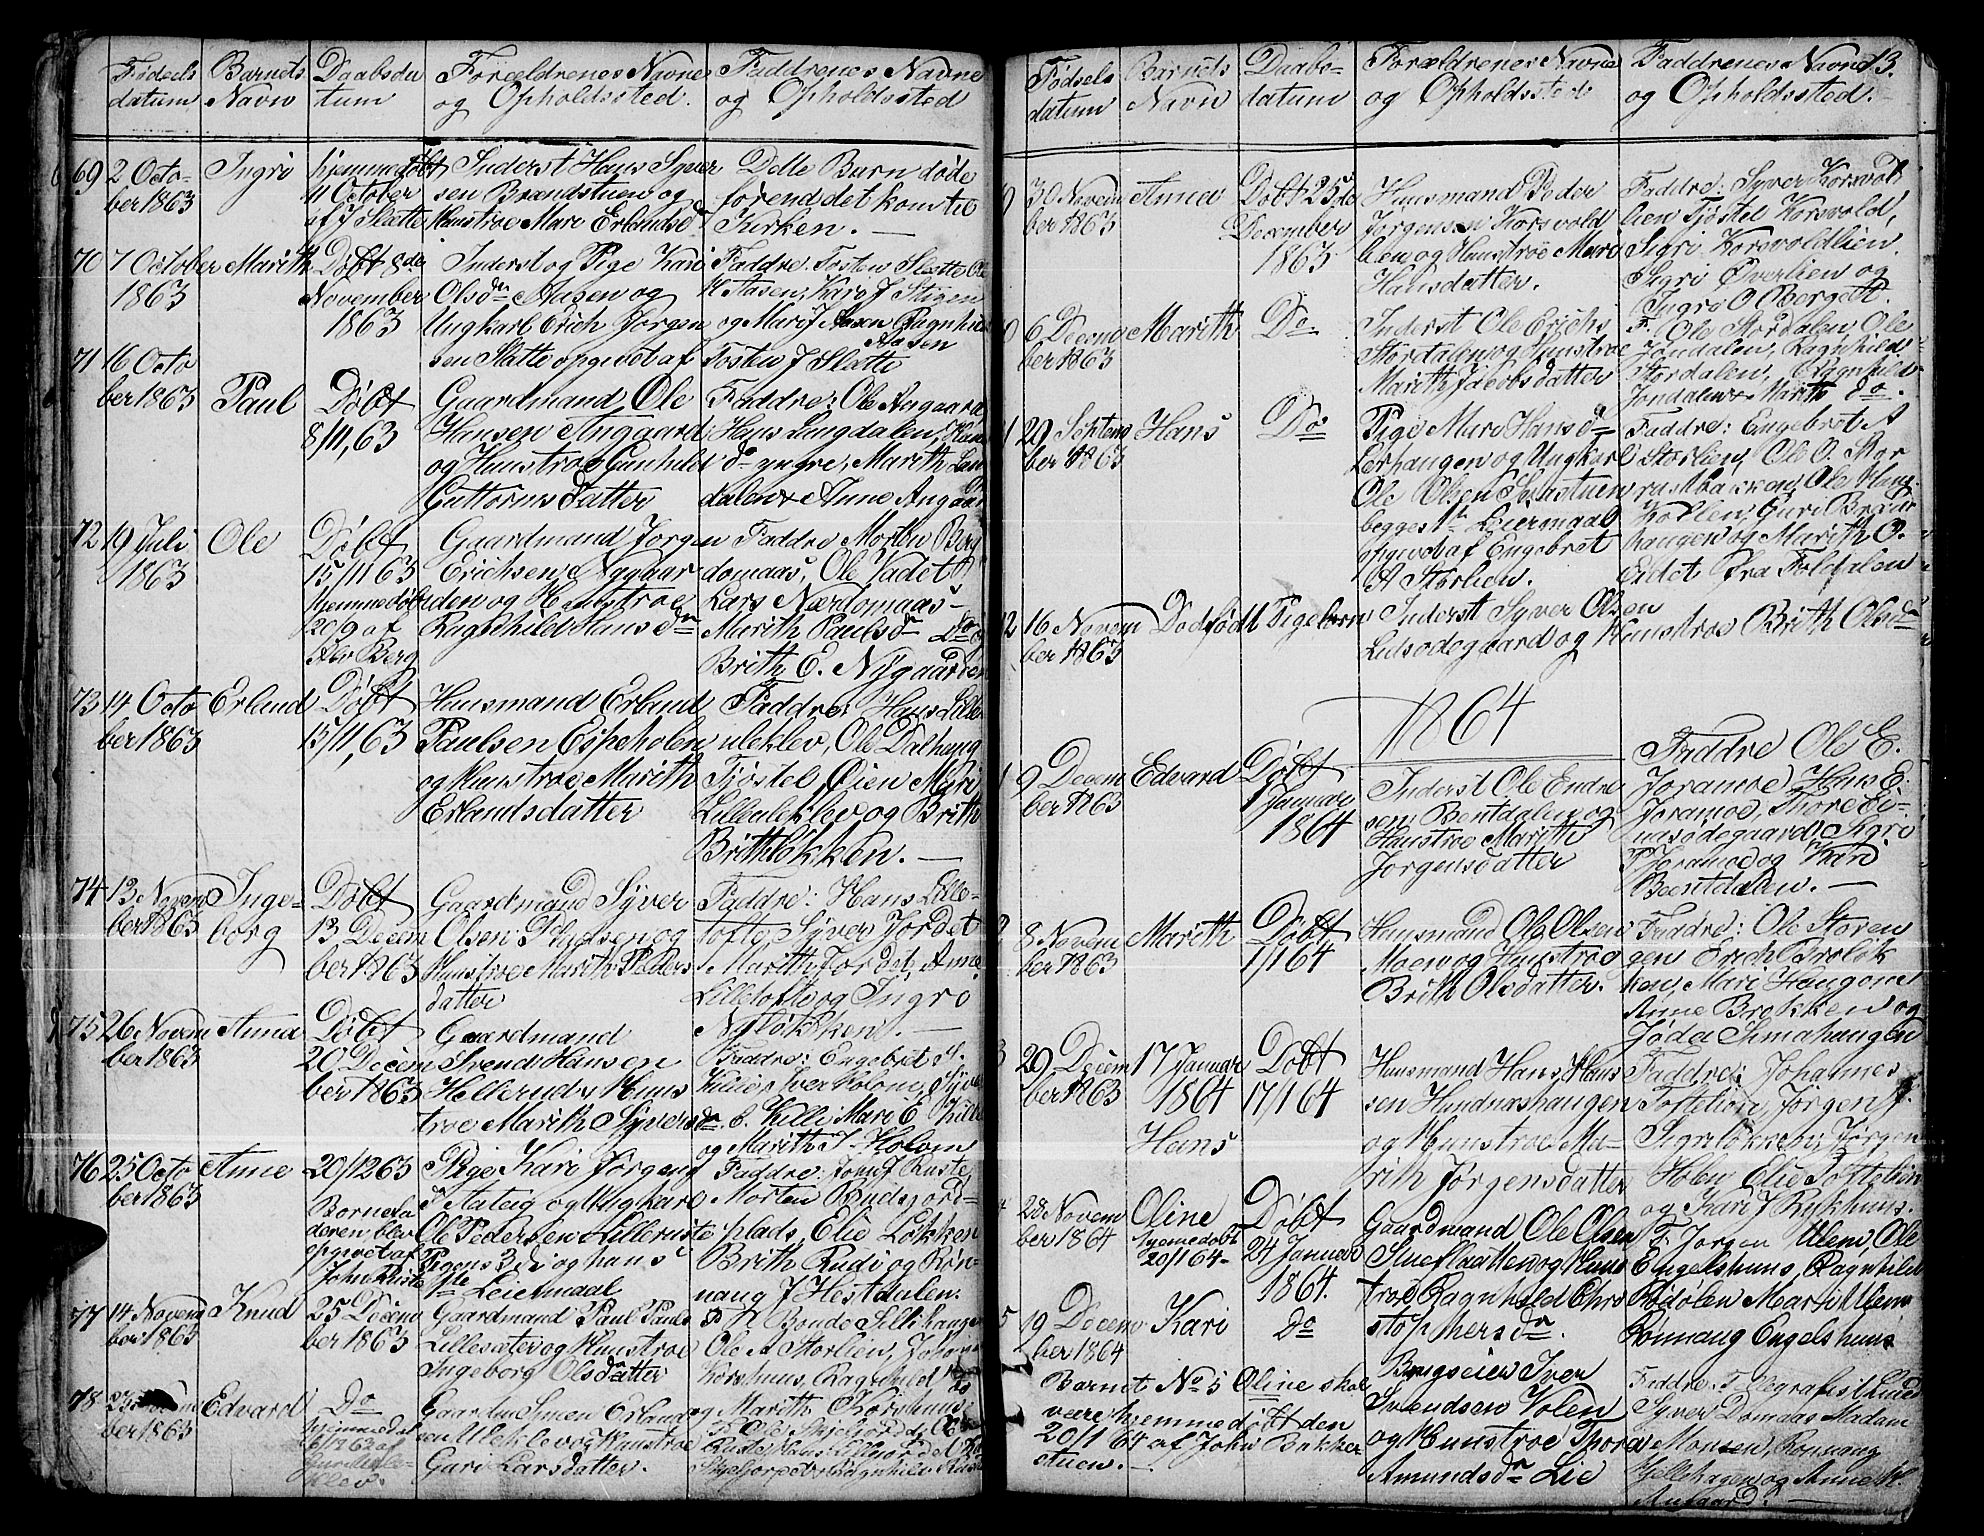 Fødsels datum
Barnets Navn
Daabsda tum
Forældrenes Navne og Opholdssted.
Faddrenes Navne og Opholdssted
69 2 Octo- ber 1863
Ingri
hjemmedøbt 11 October af J Slatte
Inderst Hans Syver sen Brændstuen og Hustroe Mari Erlandsd
Dette Barn døde førend det kom til Kirken. —
70 7 October 1863
Marith
Døbt 8de November 1863
Inderst og Pige Kari Olsdn Aasen og Ungkarl Erich Jørgen sen Slatte opgivet af Tosten J Slette
Faddre: Tosten Slette Ole K Aasen, Kari J Stigen og Mari J Aasen Ragnhild Aasen
71 16 Octo ber 1863
Paul
Døbt 8/11,63
Gaardmand Ole Hansen Angaard og Hustroe Gunhild Guttormsdatter
Faddre: Ole Angaard Hans Lingdalen, Hans do yngre, Marith Lun dalen & Anne Angaard
72 19 Juli 1863
Ole
Døbt 15/11 63 hjemmedøbt 20/9 af Berg
Gaardmand Jørgen Erichsen Nygaar den og Hustroe Ragnhild Hansdn
Faddre Morten Berg domaas, Ole Vadet Lars Nærdomaas Marith Paulsdn do og Brith E. Nygaarden
73 14 Octo ber 1863
Erland
Døbt 15/11,63
Huusmand Erland Paulsen Espeholen og Hustroe Marith Erlandsdatter
Faddre: Hans Lille uleklev, Ole Dalhaug Tjøstel Øien Mari Lilleuleklev og Brith Brithløkken. —
74 13 Novem ber 1863
Inge- borg
Døbt 13 Decem ber 1863
Gaardmand Syver Olsen Plydsen og Hustroe Marith Peders datter
Faddre: Hans Lille- tofte, Syver Jordet Marith Jordet, Anne Lilletofte og Ingri Nyløkken. —
75 26 Novem ber 1863
Anna
Døbt 20 Decem ber 1863
Gaardmand Svend Hansen Hellerud & Huus troe Marith Syversdn
Faddre: Engebret S. Kille Iver Holom, Syver E. Kille Mari E Kille og Marith J. Holom
76 25 Octo ber 1863
Anne
20/12 63 Barnefa deren blev opgivet af John Ruste
Pige Kari Jørgens d Aateig og Ungkarl Ole Pedersen Lilleruste Pigens 3di og hans 1ste Leiermaal
Faddre: John J Ruste Morten Rudsjord- plads, Elie Løkken Brith Rudi og Røn- naug J Hestdalen.
77 14 Novem ber 1863
Knud
25 Decem ber 1863
Gaardmand Paul Pauls Lillesæter og Hustroe Ingeborg Olsdatter
F K Bonde Sellihaugen Ole A Storlien, Johan Korshuus, Ragnhild do og Marith Korshuus
78 ber 1863
Edvard
Do hjemmedøbt
Gaardm Simen Erland sen Uleklev og Hustroe Gari Larsdatter.
F: Ole Skjefjordd, Ole Ruste, Hans
13.
Fødsels datum
Barnets Navn
Daabs- datum
Forældrenes Navne og Opholdssted:
Faddrenes Navne og Opholdssted. —
30 Novem ber 1863
Anna
Døbt 25de December 1863
Huusmand Peder Jørgensen Korsvold lien og Hustroe Mari Hansdatter.
Faddre: Syver Korsvol lien Tjøstel Korsvold, Sigri Korsvoldlien. Sigri Øverlien og Ingri O Borgeth.
6 Decem ber 1863
Marith
Do
Inderst Ole Erichs Stordalen og Hustroe Marith Jacobsdatter
F. Ole Stordalen, Ole Jondalen, Ragnhild Stordalen, Ragnhild Jondalen & Marith do.
29 Septem ber 1863
Hans
Do
Pige Mari Hansd Lerhaugen og Ungkarl Ole Olsen begges 1te Leiermaal opgivet af Engebret A Storlien.
Faddre: Engebret A Storlien, Ole O. Stor rustbakken, Ole Haug Kollen, Guri Braar haugen og Marith O. Eidet fra Foldalen
16 Novem ber 1863
Dødfødt Pigebarn
Inderst Syver Olsen Lidsødegaard og Hustroe Brith Olsdn
1864
9 Decem ber 1863
Edvard
Døbt 1 Januar 1864
Inderst Ole Endre sen Bentdalen og Hustroe Marith Jørgensdatter
Faddre Ole E. Joramoe, Hans E. Joramoe, Thore Ei- nasødegaard, Sigri Joramoe og Kari Bentdalen. —
8 Novem ber 1863
Marith
Døbt 1/1 64
Huusmand Ole Olsen Moen og Hustroe Brith Olsdatter.
Faddre: Ole Storen gen Erich Breløk ken, Mari Haugen Anne Brekken og Jøda Simahaugen
29 Decem ber 1863
17 Januar 1864 Hans
Døbt 17/1 64
Huusmand Hans Hans sen Hundnæshaugen og Hustroe Ma- rith Jørgensdatter
Faddre: Johannes Toftelien, Jørgen J. Sigriløkken, Jørgen Holen Elie Toftelien og Kari J Rykhuus.
28 Novem ber 1864
Oline hjemedøbt 20/1 64-
Døbt 24 Januar 1864.
Gaardmand Ole Olsen Stueflaatten og Huus troe Ragnhild Chri stophersdn.
F. Jørgen Ulem, Ole Engelshuus, Ragnhild Rødølen Mari Ulem Rønnaug Engelshuus
19 Decem ber 1864
Kari
do
Brugseier Iver Svendsen Volen og Hustroe Thora Amundsdn Lie
Faddre: Tellegrafist Lund Syver Domaas Madam Monsen, Rønnaug Hjellehagen og Anne M. Angaard. —
Barnet No 5 Oline skal være hjemmedøbt den 20/1 64 af John Bakke stuen. —